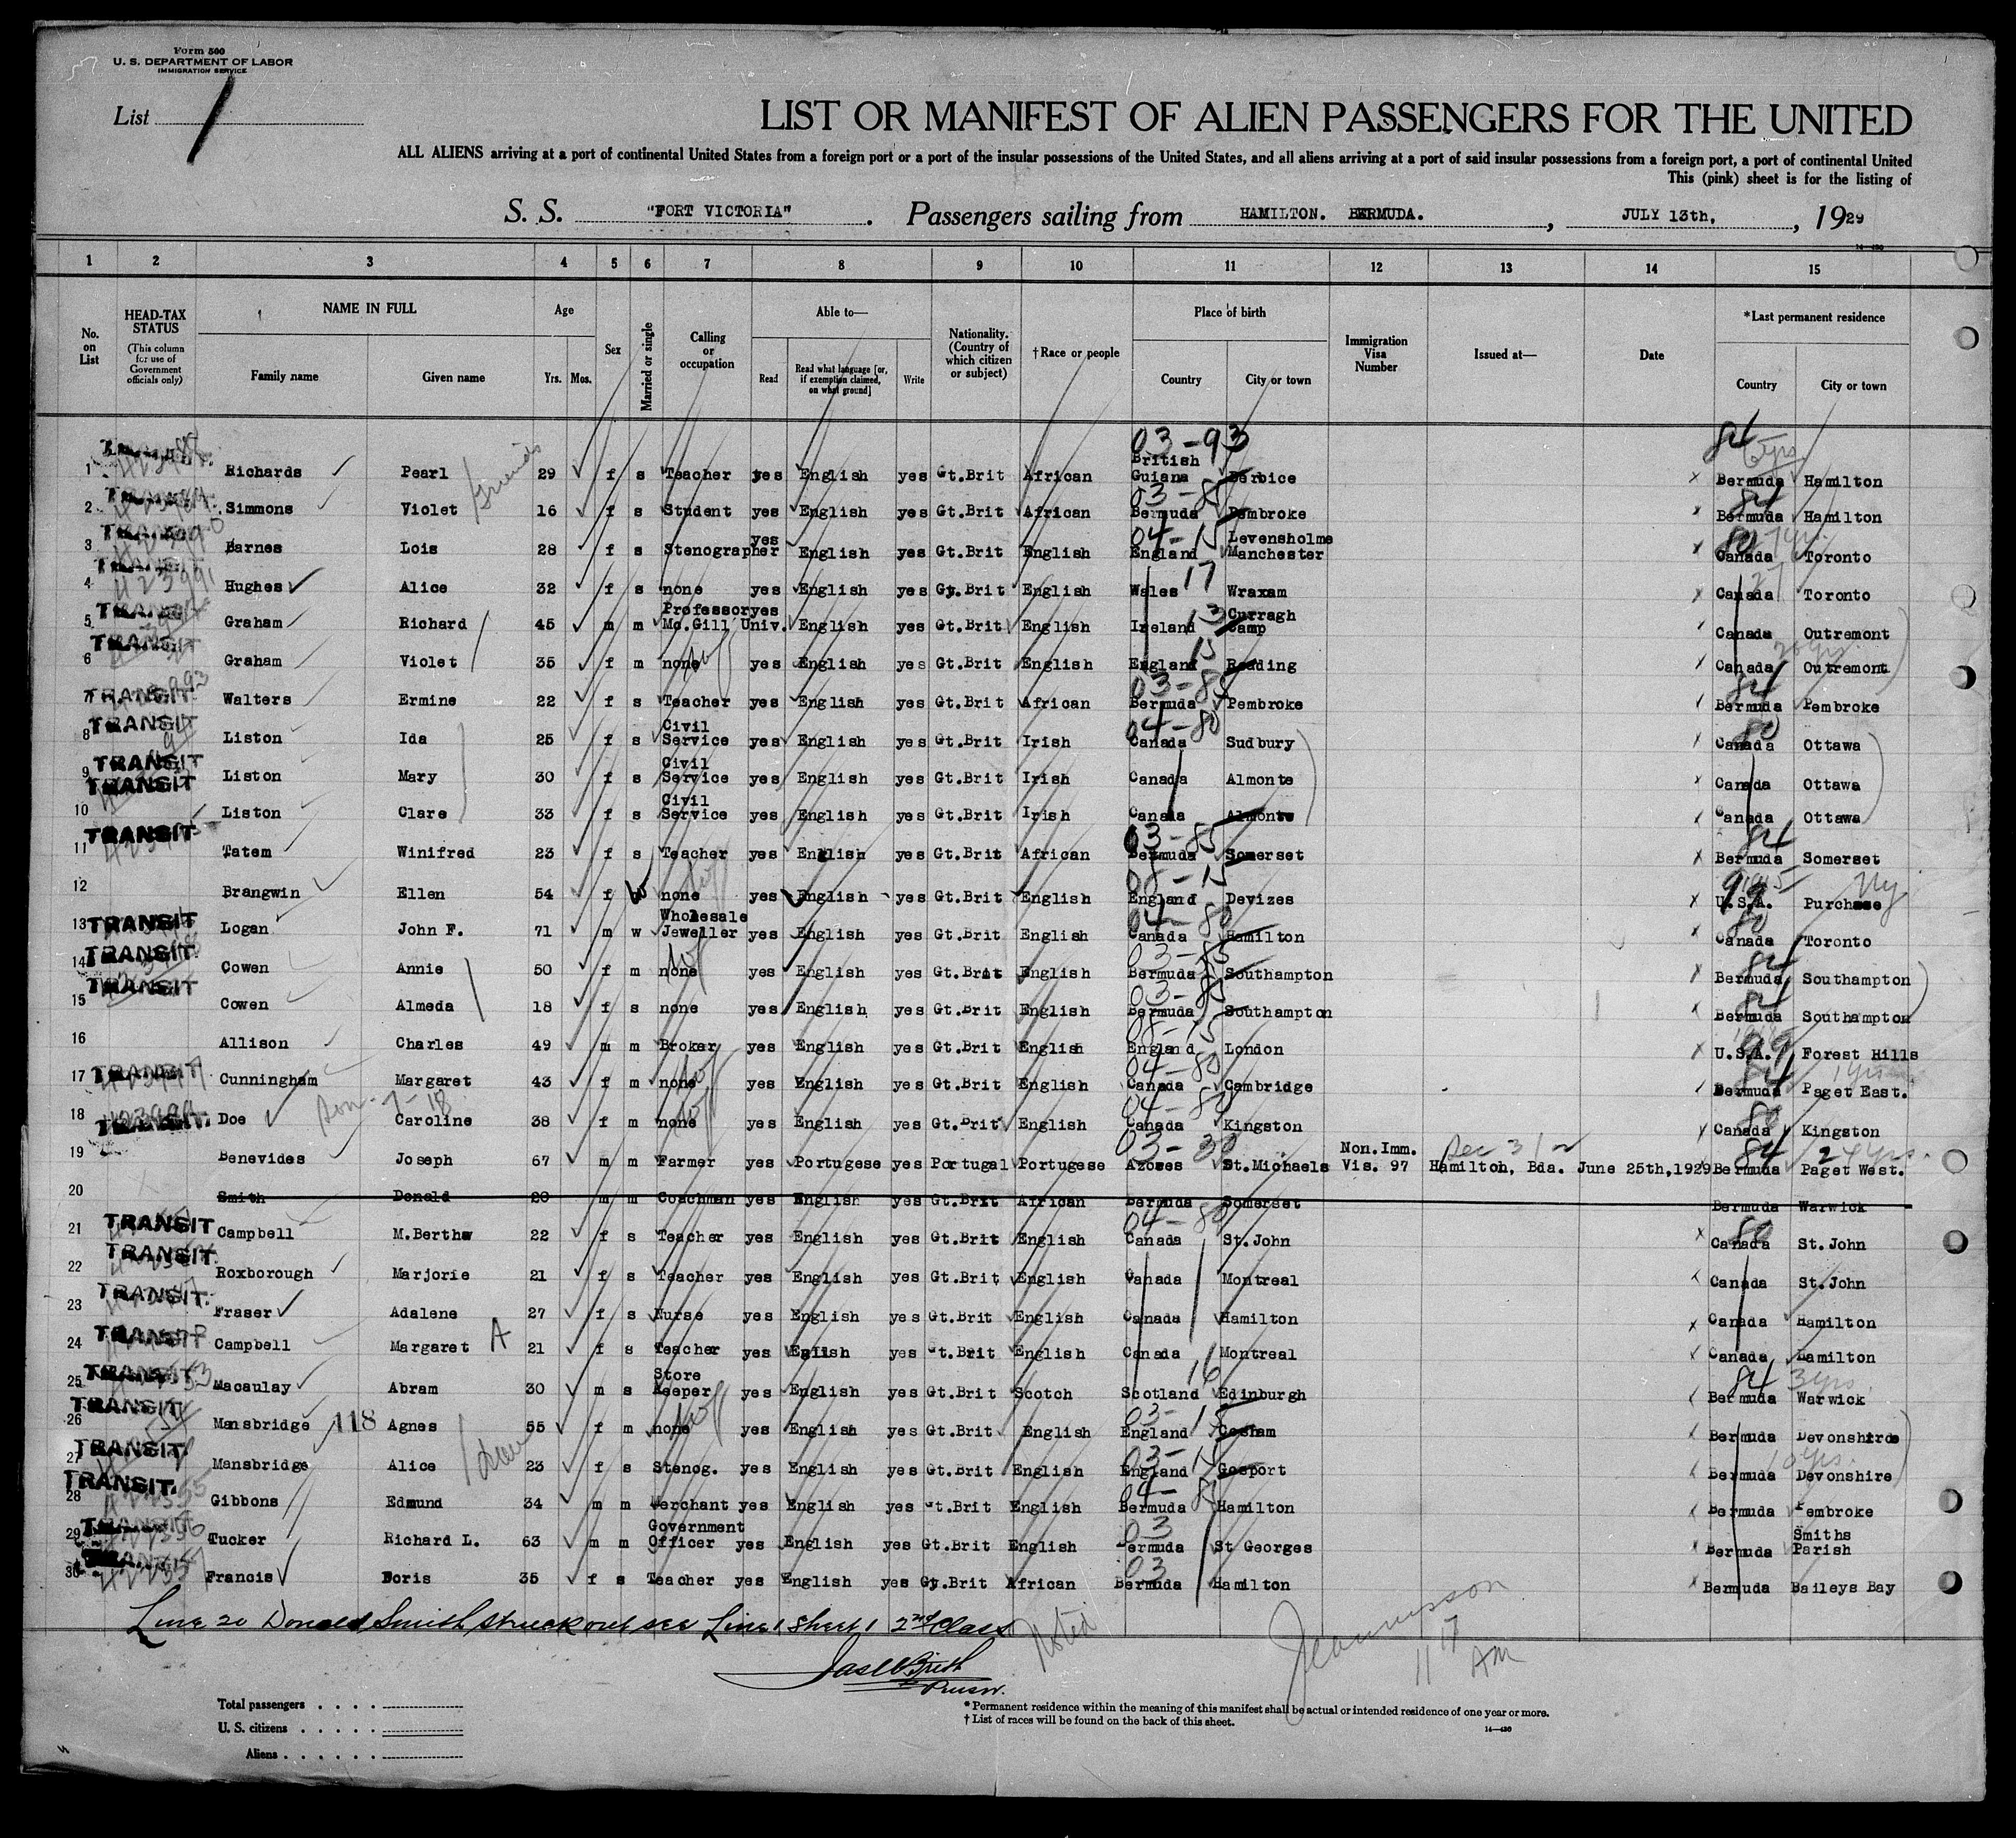 Form 500
U. S. DEPARTMENT OF LABOR
IMMIGRATION SERVICE
List 1
LIST OR MANIFEST OF ALIEN PASSENGERS FOR THE UNITED
ALL ALIENS arriving at a port of continental United States from a foreign port or a port of the insular possessions of the United States, and all aliens arriving at a port of said insular possessions from a foreign port, a port of continental United
This (pink) sheet is for the listing of
S. S. "FORT VICTORIA" . Passengers sailing from HAMILTON. BERMUDA. , JULY 13th, , 1929
1 2 3 4 5 6 7 8 9 10 11 12 13 14 15
No. on List
HEAD-TAX STATUS (This column for use of Government officials only)
NAME IN FULL
Family name Given name
Age
Yrs. Mos.
Sex
Married or single
Calling or occupation
Able to—
Read Read what language [or, if exemption claimed, on what ground] Write
Nationality. (Country of which citizen or subject)
†Race or people
Place of birth
Country City or town
Immigration Visa Number
Issued at—
Date
*Last permanent residence
Country City or town
03-93 84
1 Richards Pearl 29 f s Teacher yes English yes Gt.Brit African British Guiana Berbice Bermuda Hamilton
2 Simmons Violet 16 f s Student yes English yes Gt.Brit African Bermuda Pembroke Bermuda Hamilton
3 Barnes Lois 28 f s Stenographer yes English yes Gt.Brit English England Levensholme Manchester Canada Toronto
4 Hughes Alice 32 f s none yes English yes Gy.Brit English Wales 17 Wraxam Canada Toronto
5 TRANSIT Graham Richard 45 m m Professor Mc.Gill Univ. yes English yes Gt.Brit English Ireland 13 Curragh Camp Canada Outremont
6 TRANSIT Graham Violet 35 f m none yes English yes Gt.Brit English England 15 Reading Canada Outremont
7 TRANSIT Walters Ermine 22 f s Teacher yes English yes Gt.Brit African Bermuda Pembroke Bermuda Pembroke
8 TRANSIT Liston Ida 25 f s Civil Service yes English yes Gt.Brit Irish Canada Sudbury Canada Ottawa
9 TRANSIT Liston Mary 30 f s Civil Service yes English yes Gt.Brit Irish Canada Almonte Canada Ottawa
10 TRANSIT Liston Clare 33 f s Civil Service yes English yes Gt.Brit Irish Canada Almonte Canada Ottawa
11 TRANSIT Tatem Winifred 23 f s Teacher yes English yes Gt.Brit African Bermuda Somerset Bermuda Somerset
12 Brangwin Ellen 54 f w none yes English yes Gt.Brit English England Devizes U.S.A. Purchase Ny
13 TRANSIT Logan John F. 71 m w Wholesale Jeweller yes English yes Gt.Brit English Canada Hamilton Canada Toronto
14 TRANSIT Cowen Annie 50 f m none yes English yes Gt.Brit English Bermuda Southampton Bermuda Southampton
15 TRANSIT Cowen Almeda 18 f s none yes English yes Gt.Brit English Bermuda Southampton Bermuda Southampton
16 Allison Charles 49 m m Broker yes English yes Gt.Brit English England London U.S.A. Forest Hills
17 TRANSIT Cunningham Margaret 43 f m none yes English yes Gt.Brit English Canada Cambridge Bermuda Paget East.
18 TRANSIT. Doe Caroline 38 f m none yes English yes Gt.Brit English Canada Kingston Canada Kingston
19 Benevides Joseph 67 m m Farmer yes Portugese yes Portugal Portugese Azores St.Michaels Non.Imm. Vis. 97 Hamilton, Bda. June 25th,1929 Bermuda Paget West.
20 Smith Donald 20 m m Coachman yes English yes Gt.Brit African Bermuda Somerset Bermuda Warwick
21 TRANSIT Campbell M.Bertha 22 f s Teacher yes English yes Gt.Brit English Canada St.John Canada St.John
22 TRANSIT. Roxborough Marjorie 21 f s Teacher yes English yes Gt.Brit English Canada Montreal Canada St.John
23 TRANSIT. Fraser Adalene 27 f s Nurse yes English yes Gt.Brit English Canada Hamilton Canada Hamilton
24 TRANSIT Campbell Margaret A 21 f s Teacher yes English yes Gt.Brit English Canada Montreal Canada Hamilton
25 TRANSIT Macaulay Abram 30 m s Store Keeper yes English yes Gt.Brit Scotch Scotland 16 Edinburgh Bermuda Warwick
26 TRANSIT Mansbridge 118 Agnes 55 f m none yes English yes Gt.Brit English England Cosham Bermuda Devonshire
27 TRANSIT Mansbridge Alice 23 f s Stenog. yes English yes Gt.Brit English England Gosport Bermuda Devonshire
28 TRANSIT. Gibbons Edmund 34 m m Merchant yes English yes Gt.Brit English Bermuda Hamilton Bermuda Pembroke
29 TRANSIT Tucker Richard L. 63 m m Government Officer yes English yes Gt.Brit English Bermuda St Georges Bermuda Smiths Parish
30 TRANSIT Francis Doris 35 f s Teacher yes English yes Gy.Brit African Bermuda Hamilton Bermuda Baileys Bay
Line 20 Donald Smith struck out see Line 1 Sheet 1 2nd Class
Noted
11 17 AM
Total passengers . . . .
U. S. citizens . . . . .
Aliens . . . . . .
* Permanent residence within the meaning of this manifest shall be actual or intended residence of one year or more.
† List of races will be found on the back of this sheet.
14—430